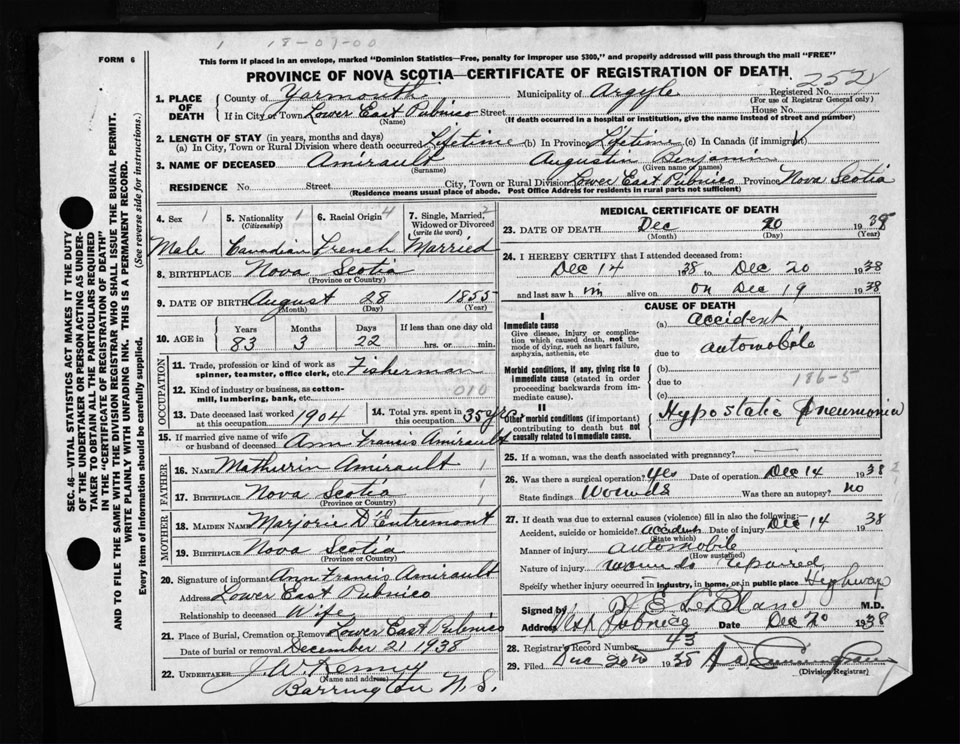 1 18-07-00
FORM 6
This form if placed in an envelope, marked "Dominion Statistics—Free, penalty for improper use $300," and properly addressed will pass through the mail "FREE"
PROVINCE OF NOVA SCOTIA—CERTIFICATE OF REGISTRATION OF DEATH
252
1. PLACE OF DEATH County of Yarmouth Municipality of Argyle Registered No.
(For use of Registrar General only)
If in City or Town Lower East Pubnico Street House No.
(Name) (If death occurred in a hospital or institution, give the name instead of street and number)
2. LENGTH OF STAY (in years, months and days)
(a) In City, Town or Rural Division where death occurred Lifetime (b) In Province Lifetime (c) In Canada (if immigrant)
3. NAME OF DECEASED Amirault Augustin Benjamin
(Surname) (Given name or names)
RESIDENCE No. Street City, Town or Rural Division Lower East Pubnico Province Nova Scotia
(Residence means usual place of abode. Post Office Address for residents in rural parts not sufficient)
4. Sex 1 Male
5. Nationality 1 (Citizenship) Canadian
6. Racial Origin 4 French
7. Single, Married, Widowed or Divorced (write the word) 2 Married
8. BIRTHPLACE Nova Scotia
(Province or Country)
9. DATE OF BIRTH August 28 1855
(Month) (Day) (Year)
10. AGE in Years Months Days If less than one day old
83 3 22 hrs. or min.
OCCUPATION
11. Trade, profession or kind of work as spinner, teamster, office clerk, etc. Fisherman
12. Kind of industry or business, as cotton-mill, lumbering, bank, etc. 010
13. Date deceased last worked at this occupation 1904
14. Total yrs. spent in this occupation 35 yrs.
15. If married give name of wife or husband of deceased Ann Francis Amirault
FATHER
16. NAME Mathurin Amirault 1
17. BIRTHPLACE Nova Scotia 1
(Province or Country)
MOTHER
18. MAIDEN NAME Marjorie D'Entremont
19. BIRTHPLACE Nova Scotia
(Province or Country)
20. Signature of informant Ann Francis Amirault
Address Lower East Pubnico
Relationship to deceased Wife
21. Place of Burial, Cremation or Removal Lower East Pubnico
Date of burial or removal December 21 1938
22. UNDERTAKER J. W. Kenney
(Name and address)
Barrington N. S.
MEDICAL CERTIFICATE OF DEATH
23. DATE OF DEATH Dec 20 1938
(Month) (Day) (Year)
24. I HEREBY CERTIFY that I attended deceased from:
Dec 14 1938 to Dec 20 1938
and last saw h im alive on on Dec 19 1938
CAUSE OF DEATH
I
Immediate cause
Give disease, injury or complication which caused death, not the mode of dying, such as heart failure, asphyxia, asthenia, etc
(a) accident
due to automobile
Morbid conditions, if any, giving rise to immediate cause (stated in order proceeding backwards from immediate cause).
(b)
due to 186-5
(c)
II
Other morbid conditions (if important) contributing to death but not causally related to immediate cause.
Hypostatic Pneumonia
25. If a woman, was the death associated with pregnancy?
26. Was there a surgical operation? Yes Date of operation Dec 14 1938
State findings Wounds Was there an autopsy? no
27. If death was due to external causes (violence) fill in also the following:—
Accident, suicide or homicide? Accident Date of injury Dec 14 1938
(State which)
Manner of injury automobile
(How sustained)
Nature of injury wounds repaired
Specify whether injury occurred in industry, in home, or in public place Highway
Signed by J E LeBlanc M.D.
Address West Pubnico Date Dec 20 1938
28. Registrar's Record Number 43
29. Filed Dec 20th 1938
(Division Registrar)
SEC. 46—VITAL STATISTICS ACT MAKES IT THE DUTY
OF THE UNDERTAKER OR PERSON ACTING AS UNDER-
TAKER TO OBTAIN ALL THE PARTICULARS REQUIRED
IN THE "CERTIFICATE OF REGISTRATION OF DEATH"
AND TO FILE THE SAME WITH THE DIVISION REGISTRAR WHO SHALL ISSUE THE BURIAL PERMIT.
WRITE PLAINLY WITH UNFADING INK. THIS IS A PERMANENT RECORD.
Every item of Information should be carefully supplied. (See reverse side for instructions.)